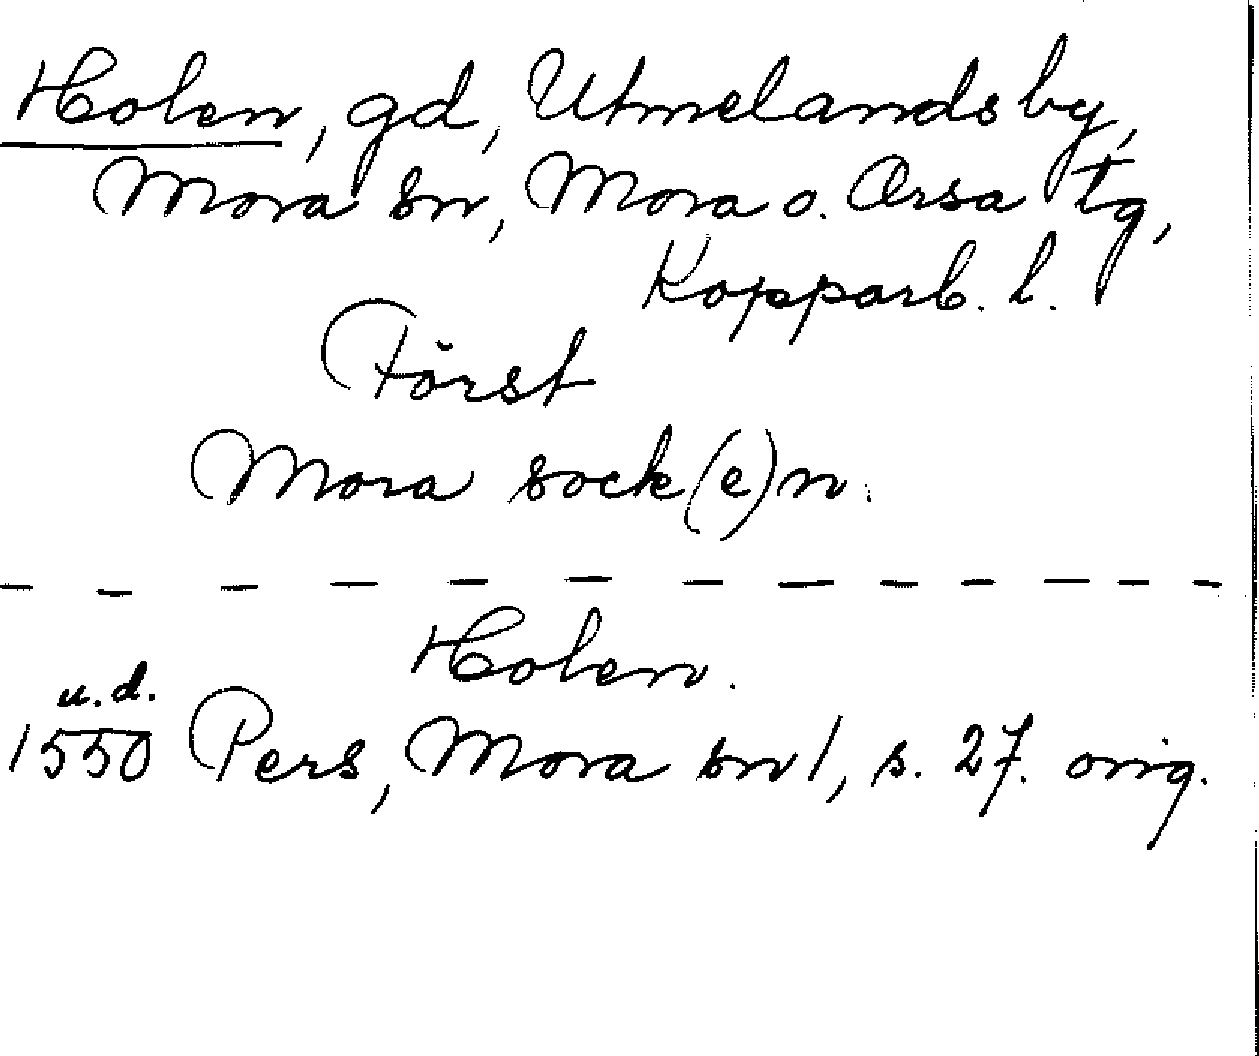 Holen, gd, Utmelandsby,
Mora sn, Mora o. Orsa tg,
Kopparb. l.
Först
Mora sock(e)n.
Holen.
u.d.
1550 Pers, Mora sn 1, s. 27. orig.